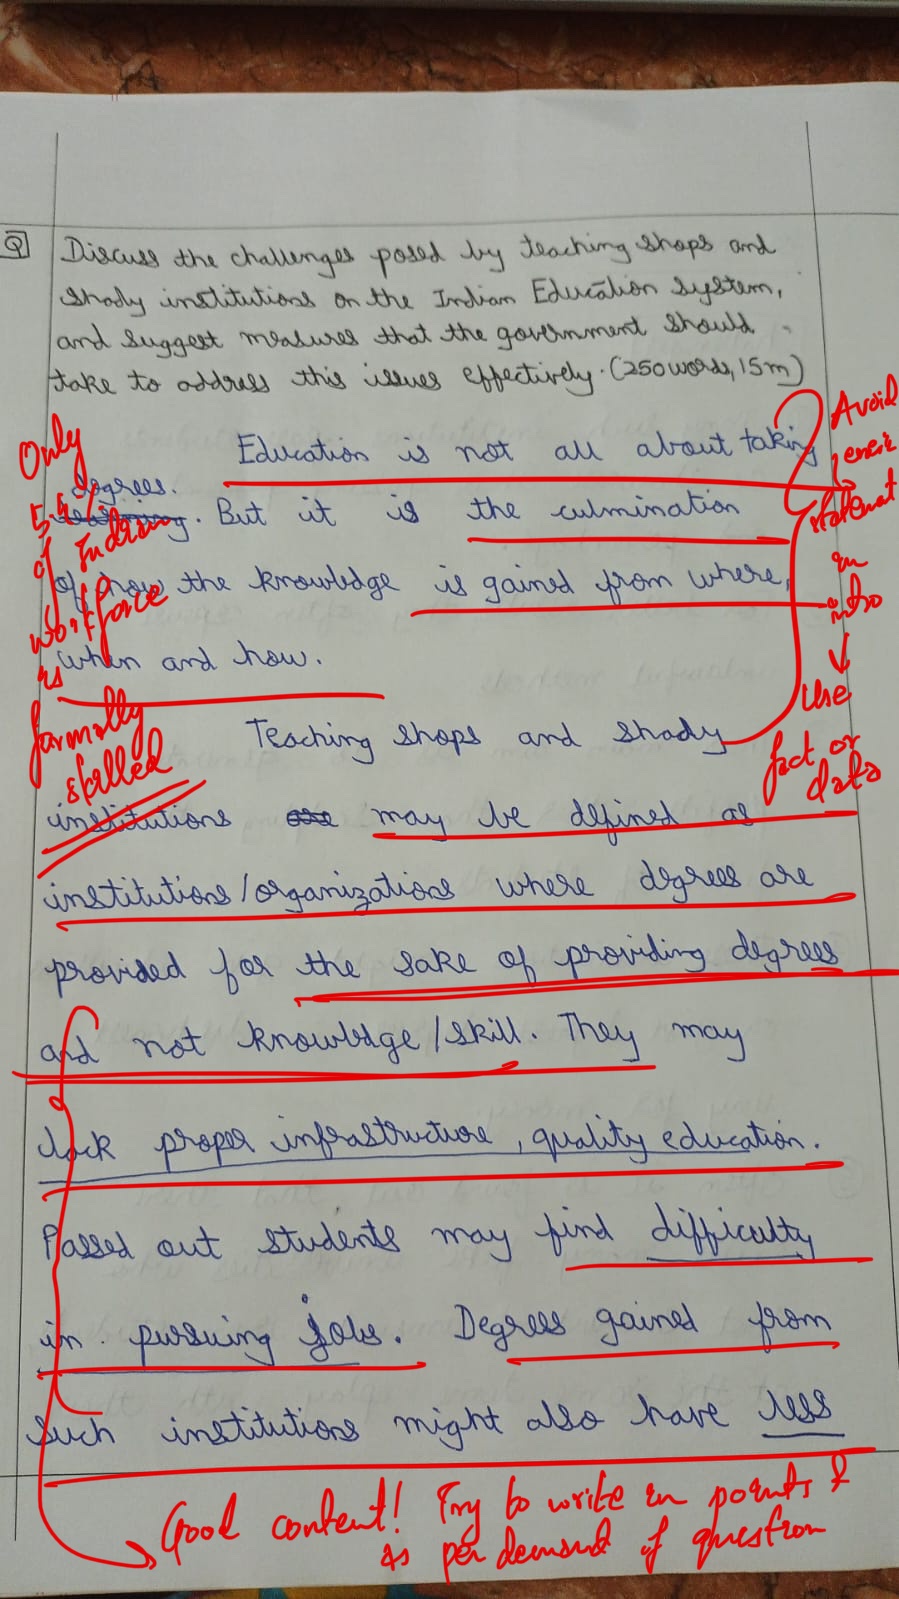 Q Discuss the challenges posed by teaching shops and
shady institutions on the Indian Education System,
and suggest measures that the government should
take to address this issues effectively. (250 words, 15m)
Education is not all about taking
degrees. But it is the culmination
of how the knowledge is gained from where,
when and how.
Teaching shops and shady
institutions may be defined as
institutions/organizations where degrees are
provided for the sake of providing degrees
and not knowledge/skill. They may
lack proper infrastructure, quality education.
Passed out students may find difficulty
in pursuing jobs. Degrees gained from
such institutions might also have less
Only
of Indian
workforce
is
formally
skilled
Avoid
statement
in
intro
Use
fact or
data
Good content! Try to write in points &
as per demand of question